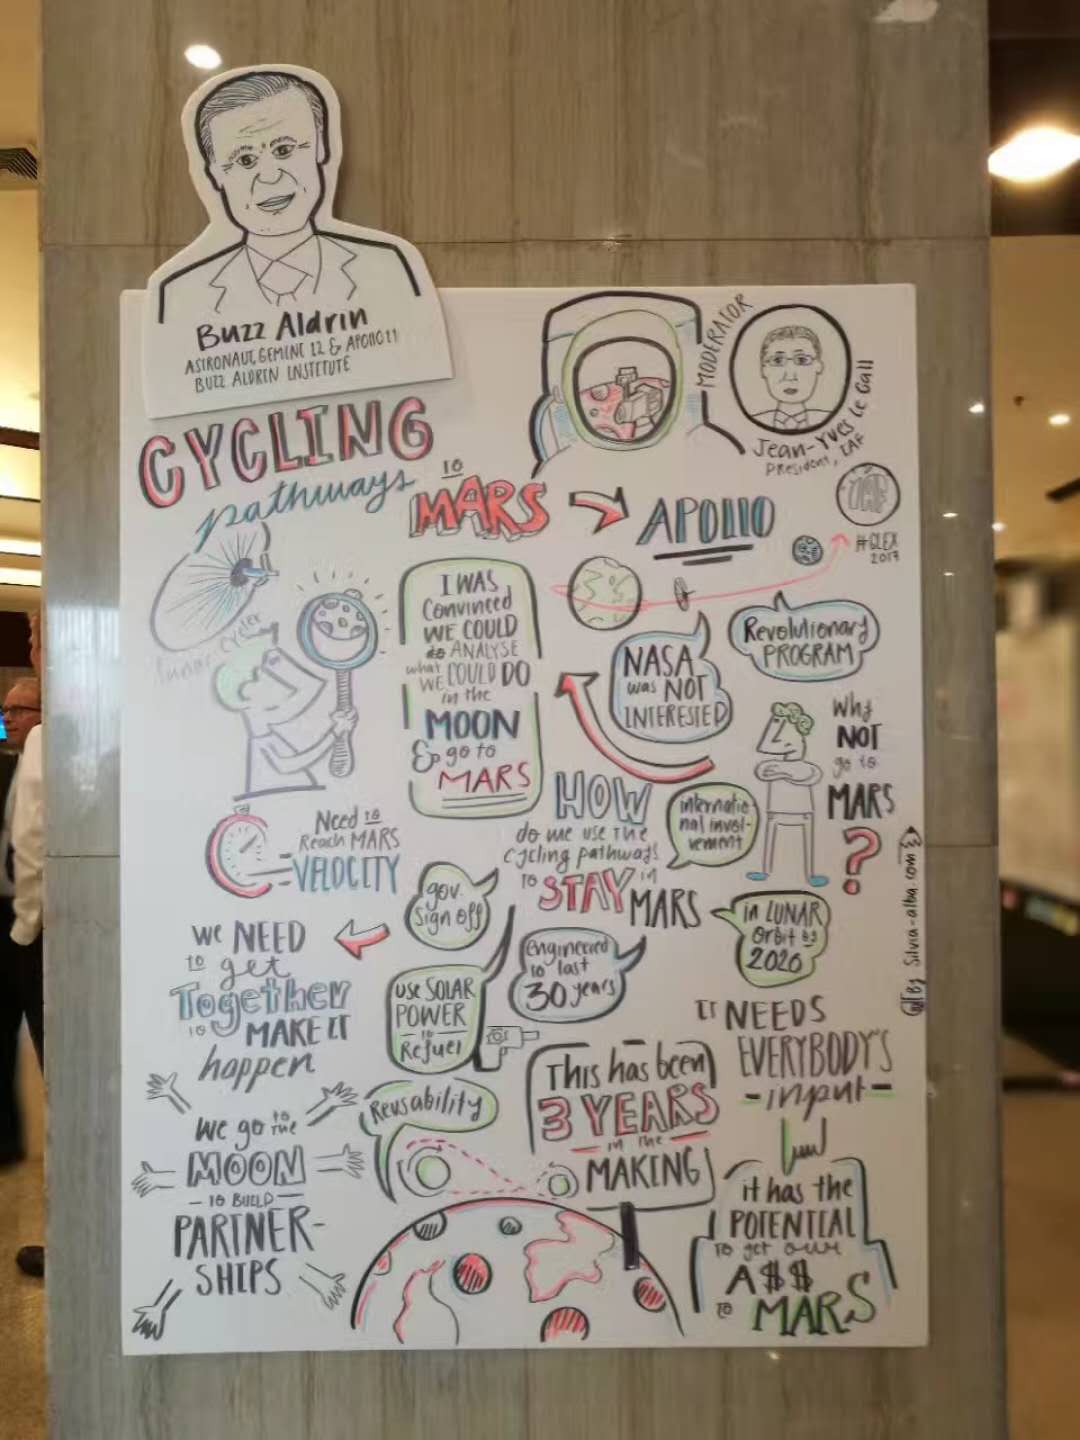 Buzz Aldrin
ASTRONAUT, GEMINI 12 & APOLLO 11
BUZZ ALDRIN INSTITUTE
MODERATOR
Jean-Yves Le Gall
President, IAF
CYCLING
pathways
to
MARS
APOLLO
IAF
#GLEX
2017
Lunar Cycler
I WAS
Convinced
WE COULD
to ANALYSE
what
WE COULD DO
in the
MOON
& go to
MARS
NASA
was NOT
INTERESTED
Revolutionary
PROGRAM
Why
NOT
go to
MARS
?
Need to
Reach MARS
VELOCITY
HOW
do we use the
cycling pathways
to STAY in
MARS
internatio-
nal invol-
vement
gov.
Sign off
in LUNAR
Orbit by
2020
By Silvia-alba.com
WE NEED
to get
Together
to MAKE IT
happen
USE SOLAR
POWER
to
Refuel
engineered
to last
30 years
IT NEEDS
EVERYBODY'S
-input-
We go to the
MOON
- TO BUILD -
PARTNER-
SHIPS
Reusability
This has been
3 YEARS
in the
MAKING
it has the
POTENTIAL
to get our
A$$
to MARS